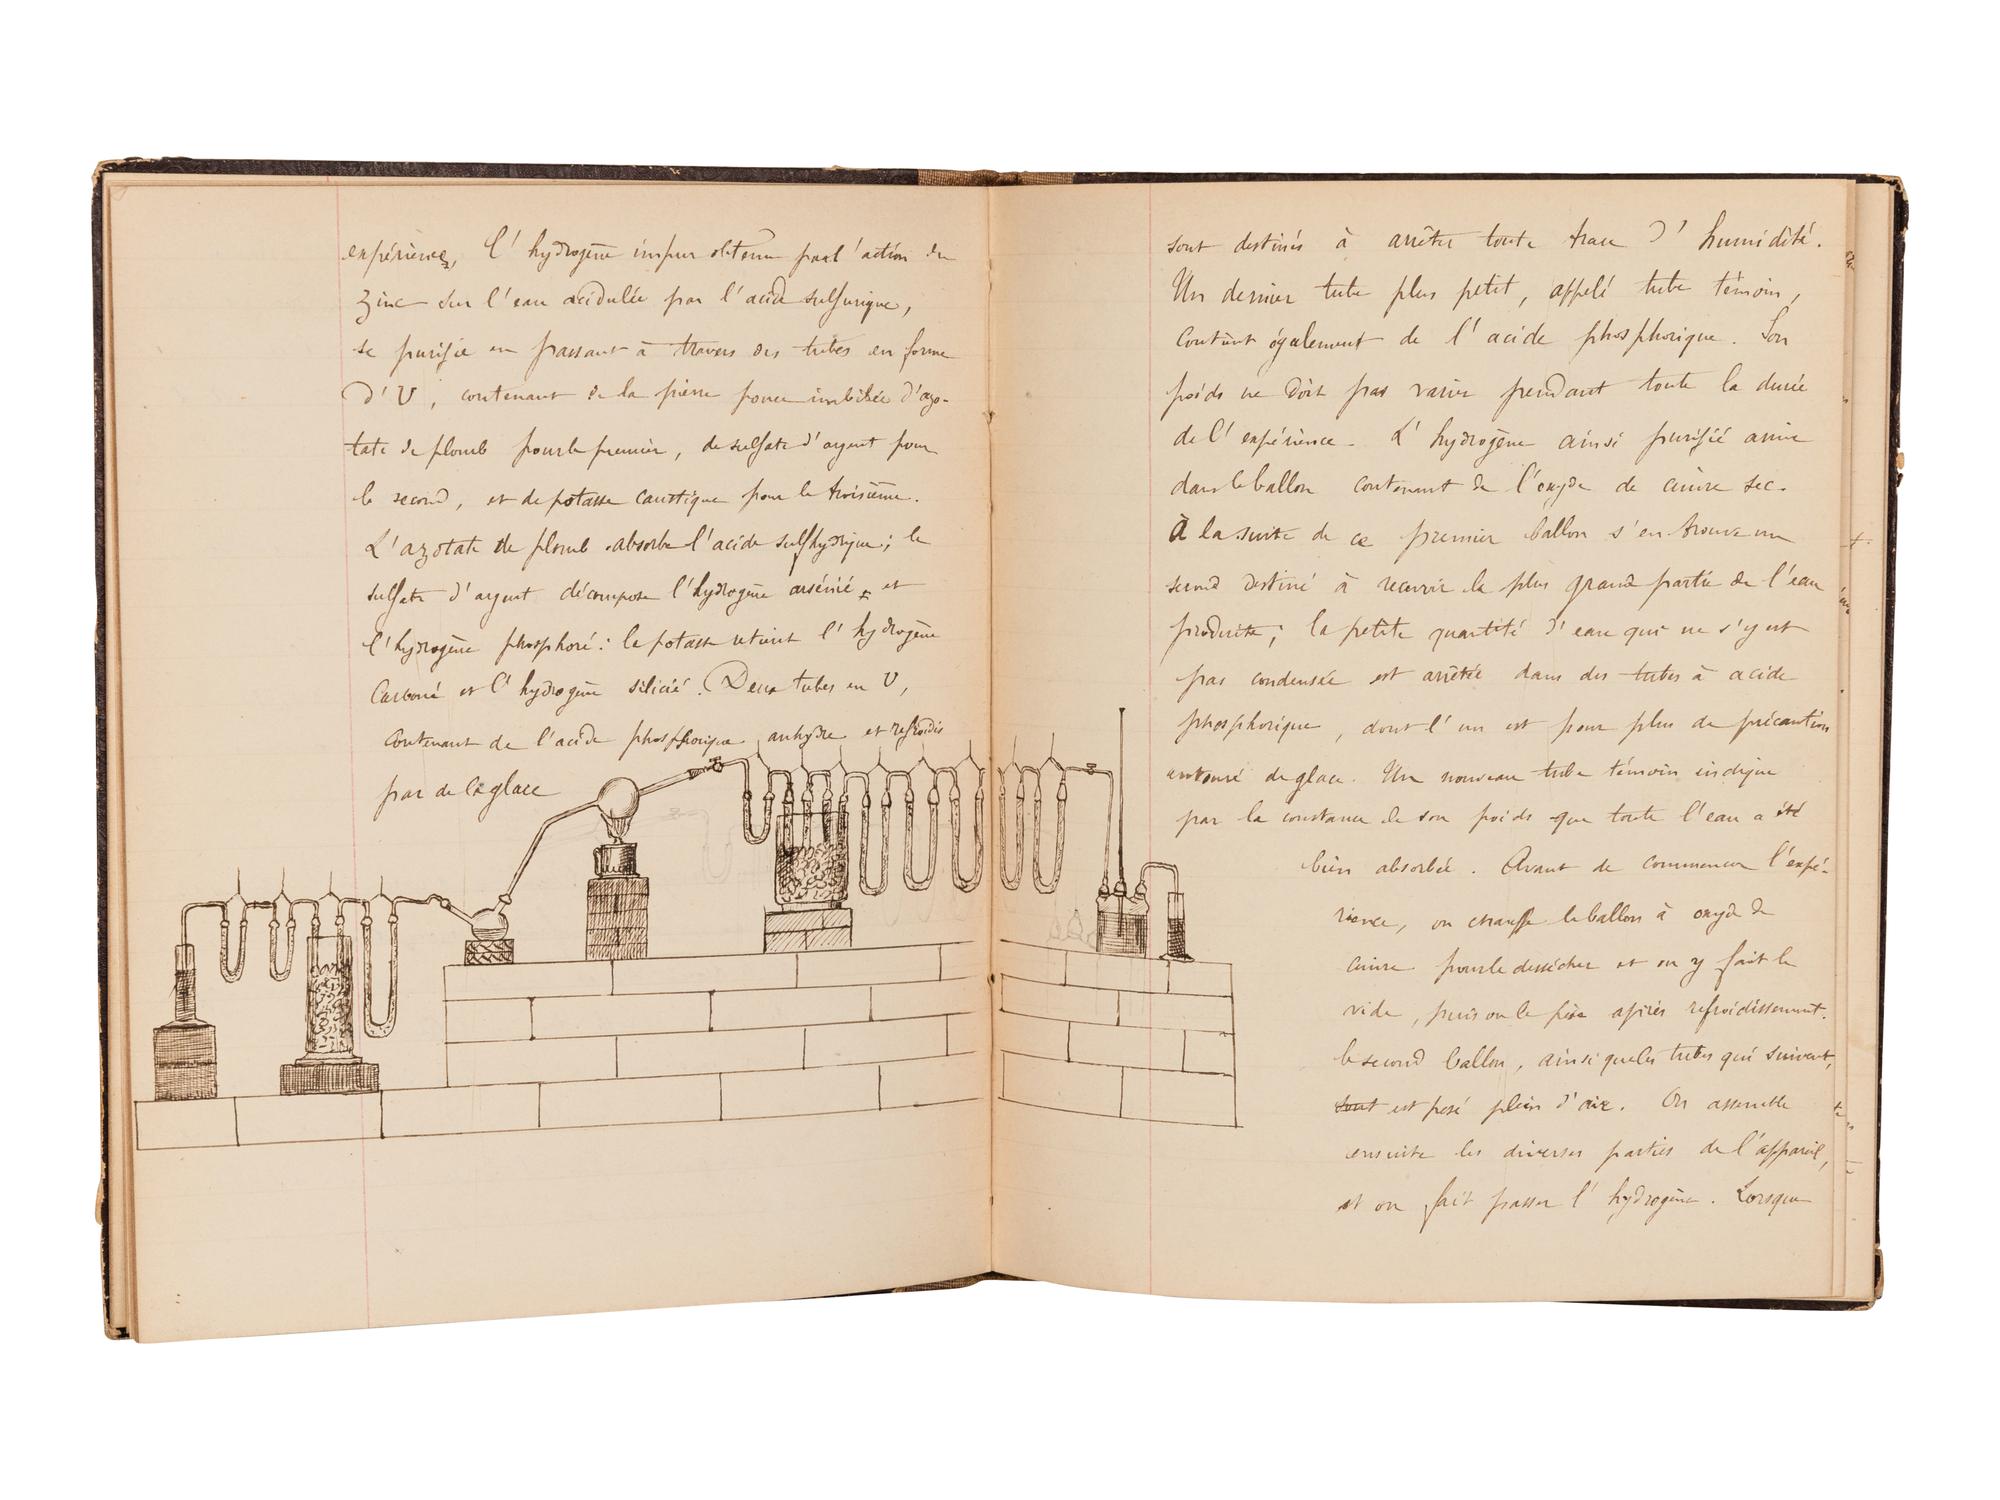 expériences, l'hydrogène impur obtenu par l'action du
zinc sur l'eau acidulée par l'acide sulfurique,
se purifie en passant à travers des tubes en forme
d'U, contenant de la pierre ponce imbibée d'azo-
tate de plomb pour le premier, de sulfate d'argent pour
le second, et de potasse caustique pour le troisième.
L'azotate de plomb absorbe l'acide sulfhydrique; le
sulfate d'argent décompose l'hydrogène arsénié et
l'hydrogène phosphoré: la potasse retient l'hydrogène
Carboné et l'hydrogène silicié. Deux tubes en U,
contenant de l'acide phosphorique anhydre et refroidis
par de la glace
sont destinés à arrêter toute trace d'humidité.
Un dernier tube plus petit, appelé tube témoin,
contient également de l'acide phosphorique. Son
poids ne doit pas varier pendant toute la durée
de l'expérience. L'hydrogène ainsi purifié arrive
dans le ballon contenant de l'oxyde de cuivre sec.
À la suite de ce premier ballon s'en trouve un
second destiné à recevoir la plus grande partie de l'eau
produite; la petite quantité d'eau qui ne s'y est
pas condensée est arrêtée dans des tubes à acide
phosphorique, dont l'un est pour plus de précaution
entouré de glace. Un nouveau tube témoin indique
par la constance de son poids que toute l'eau a été
bien absorbée. Avant de commencer l'expé-
rience, on chauffe le ballon à oxyde de
cuivre pour le dessécher et on y fait le
vide, puis on le pèse après refroidissement.
le second ballon, ainsi que les tubes qui suivent,
sont est pesé plein d'air. On assemble
ensuite les diverses parties de l'appareil,
et on fait passer l'hydrogène. Lorsque